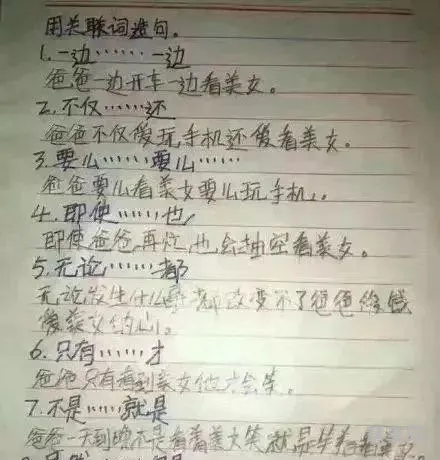 用关联词造句。
1.一边……一边
爸爸一边开车一边看美女。
2.不仅……还
爸爸不仅爱玩手机还爱看美女。
3.要么……要么……
爸爸要么看美女要么玩手机。
4.即使……也
即使爸爸再忙,也会抽空看美女。
5.无论……都
无论发生什么事都改变不了爸爸
爱美女的心。
6.只有……才
爸爸只有看到美女他才会笑。
7.不是……就是
爸爸一天到晚不是看着美女笑,就是笑着看美女。